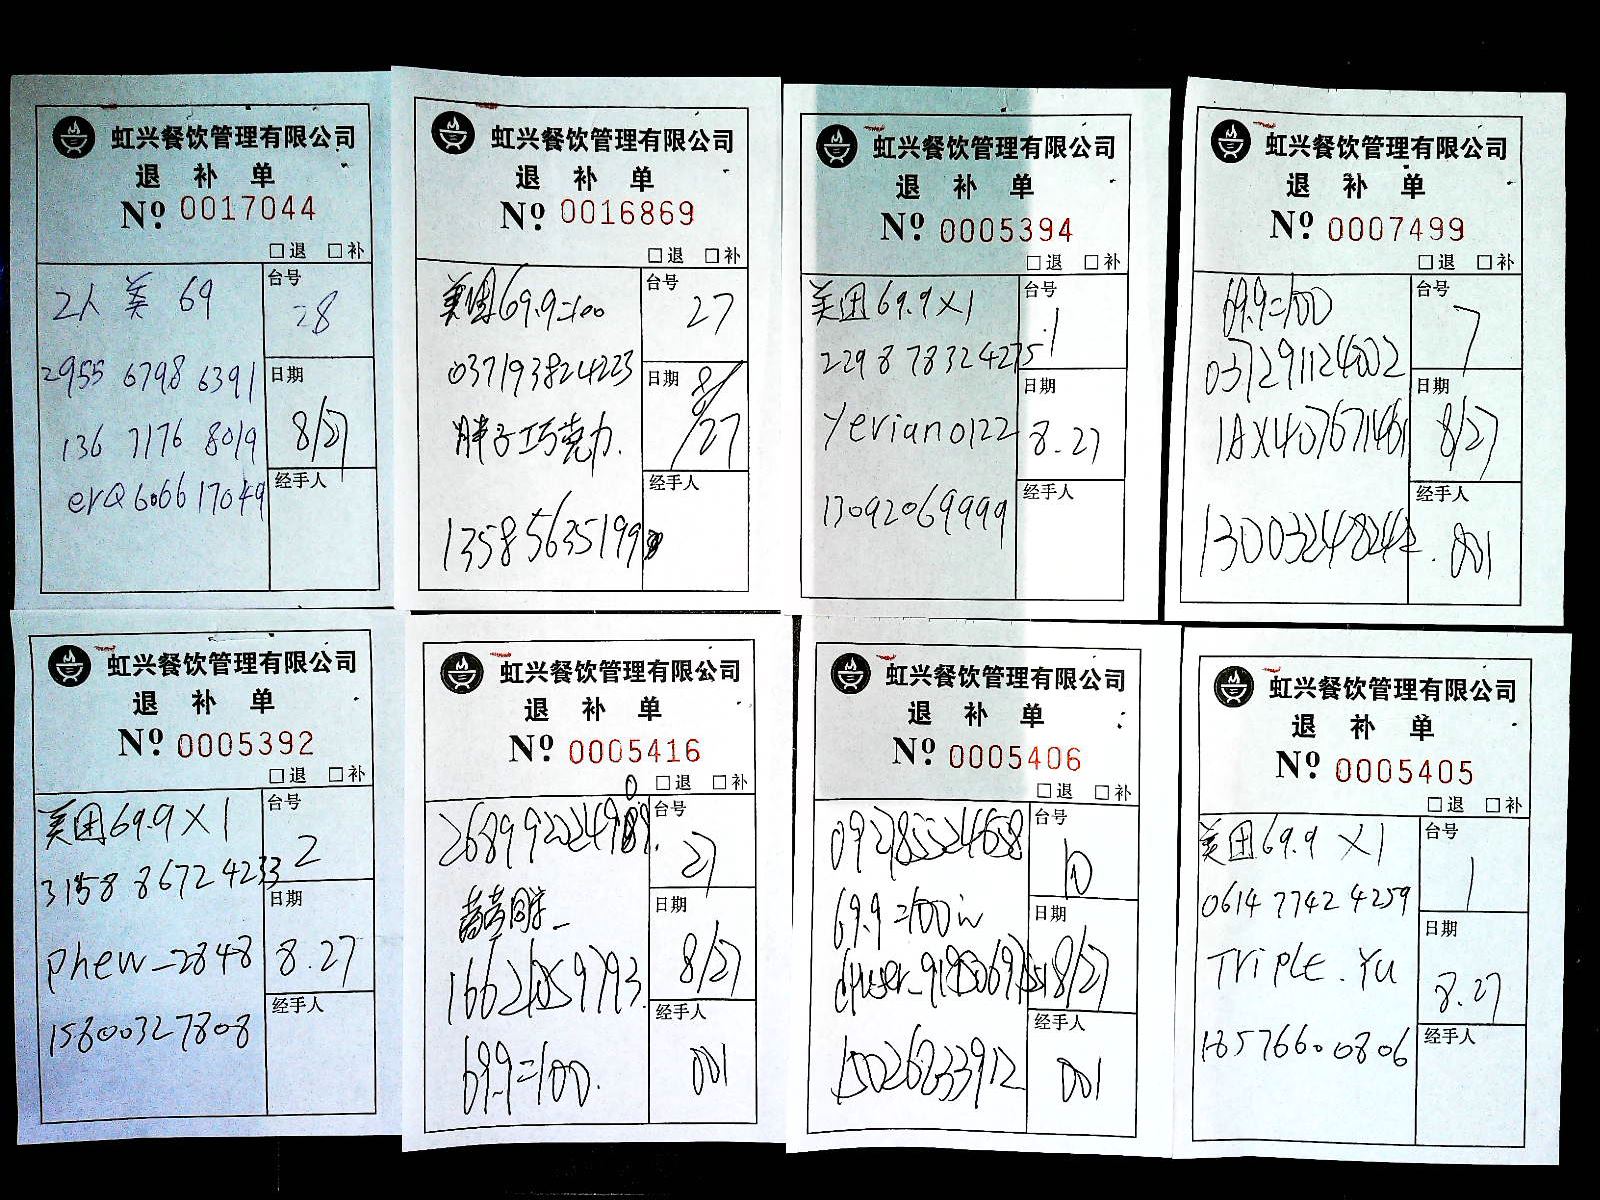 虹兴餐饮管理有限公司
退 补 单
Nº 0017044
□退 □补
2人 美 69
2955 6798 6391
136 7176 8019
erQ606617049
台号
28
日期
8/27
经手人
虹兴餐饮管理有限公司
退 补 单
Nº 0016869
□退 □补
美团69.9=100
037193824223
胖子巧克力.
13585635199
台号
27
日期
8/27
经手人
虹兴餐饮管理有限公司
退 补 单
Nº 0005394
□退 □补
美团69.9X1
2298 7832 4275
Yeriano122
13092069999
台号
1
日期
8.27
经手人
虹兴餐饮管理有限公司
退 补 单
Nº 0007499
□退 □补
69.9=100
037291124002
1AX407671461
13003248242
台号
7
日期
8/27
经手人
001
虹兴餐饮管理有限公司
退 补 单
Nº 0005392
□退 □补
美团69.9X1
3158 8672 4233
phew_2848
15600327808
台号
2
日期
8.27
经手人
虹兴餐饮管理有限公司
退 补 单
Nº 0005416
□退 □补
69.9=100.
台号
27
日期
8/27
经手人
001
虹兴餐饮管理有限公司
退 补 单
Nº 0005406
□退 □补
092785524658
69.9=100
15026233912
台号
10
日期
8/27
经手人
001
虹兴餐饮管理有限公司
退 补 单
Nº 0005405
□退 □补
美团69.9 X1
0614 7742 4259
TriPLE.Yu
18576600806
台号
1
日期
8.27
经手人